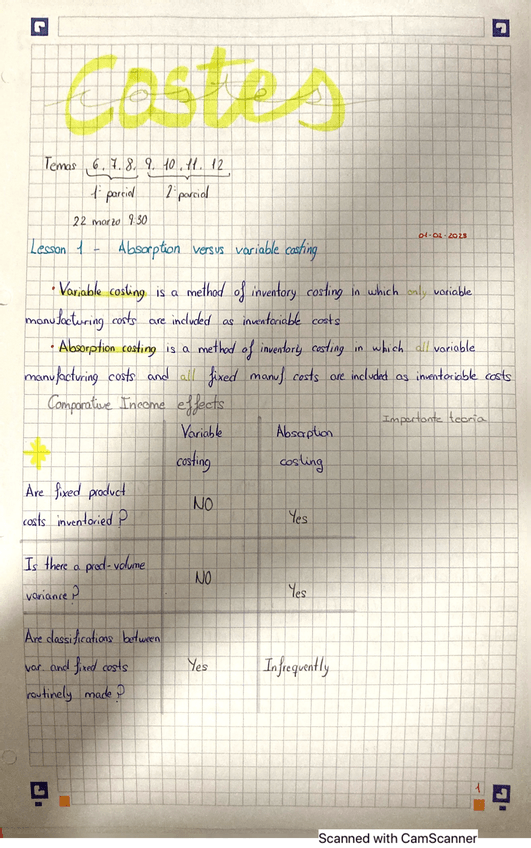 Costes
Temas 6. 7. 8. 9. 10. 11. 12
1º parcial 2º parcial
22 marzo 9:30
01-02-2023
Lesson 1 - Absorption versus variable costing
· Variable costing is a method of inventory costing in which only variable
manufacturing costs are included as inventoriable costs
· Absorption costing is a method of inventory costing in which all variable
manufacturing costs and all fixed manuf costs are included as inventoriable costs
Comparative Income effects
Importante teoria
Variable costing
Absorption costing
Are fixed product
costs inventoried?
NO
Yes
Is there a prod-volume
variance?
NO
Yes
Are classifications between
var. and fixed costs
routinely made?
Yes
Infrequently
1
Scanned with CamScanner